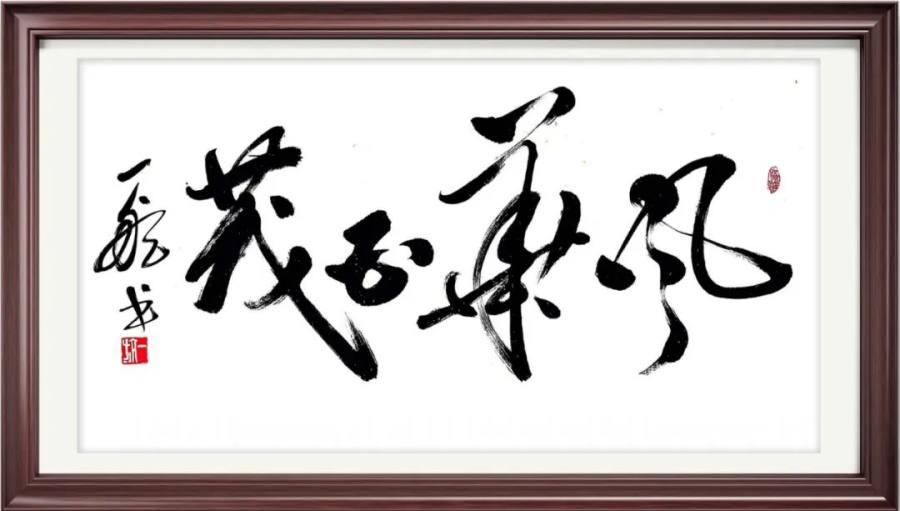 风华正茂
一帆书